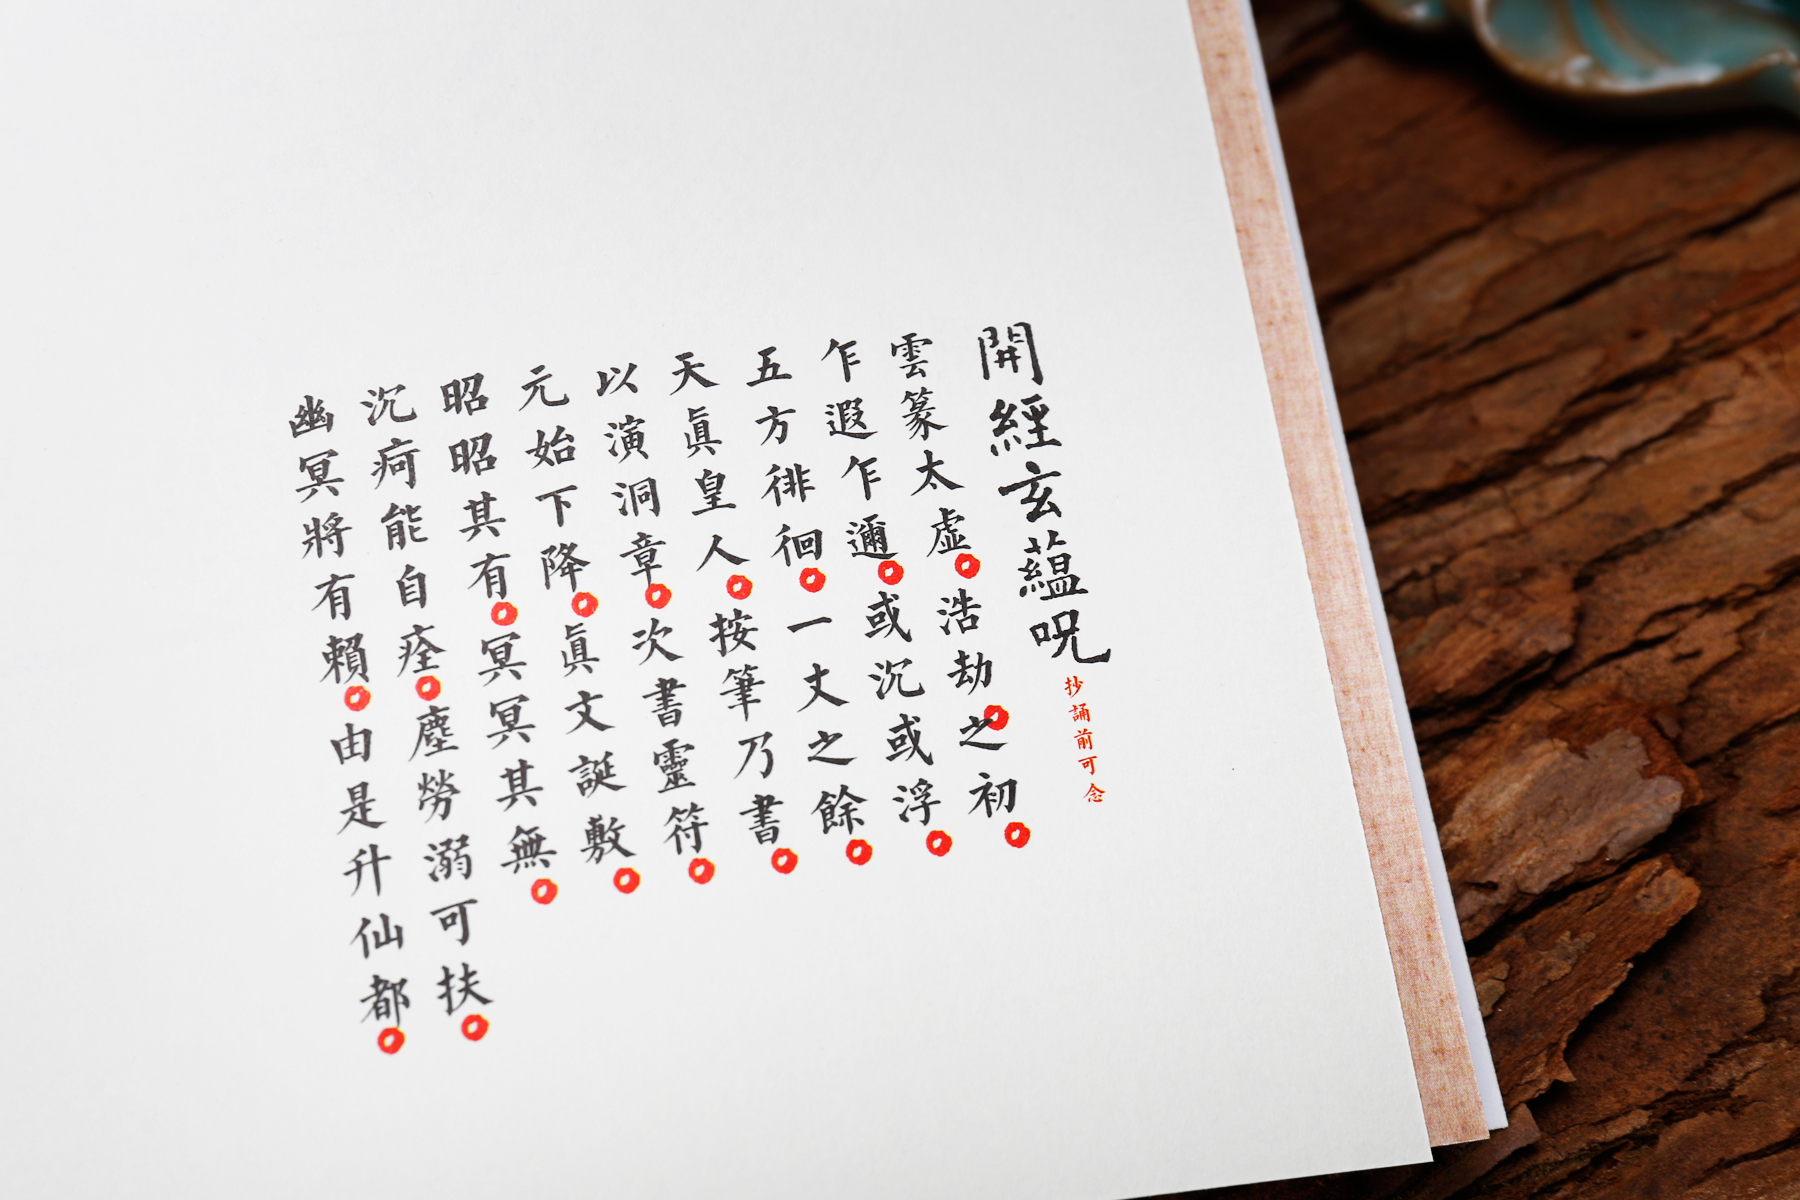 開經玄蘊呪
抄誦前可念
雲篆太虛浩劫之初
乍遐乍邇或沉或浮
五方徘徊一丈之餘
天眞皇人按筆乃書
以演洞章次書靈符
元始下降眞文誕敷
昭昭其有冥冥其無
沉疴能自痊塵勞溺可扶
幽冥將有賴由是升仙都